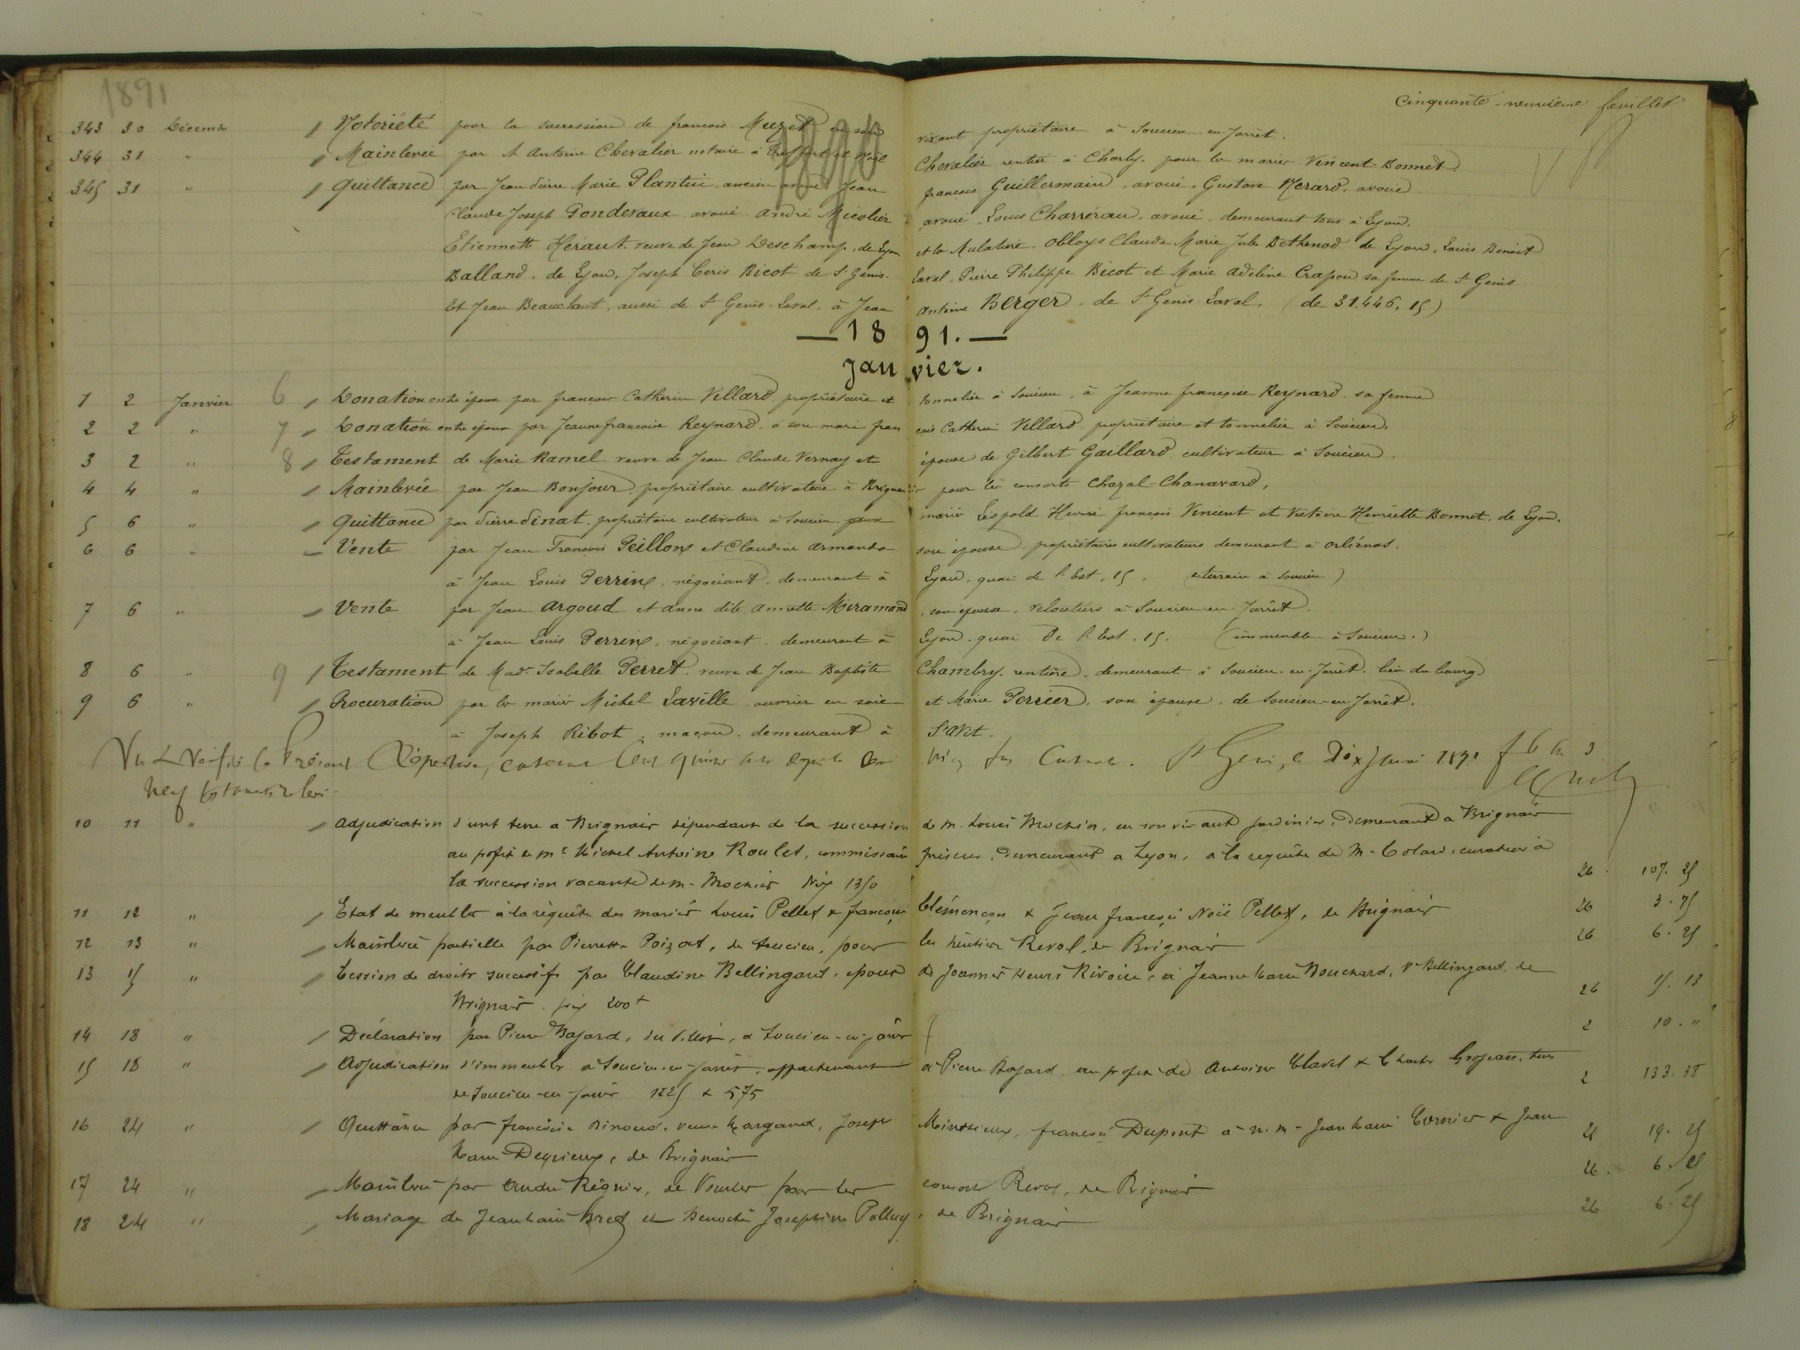 1891
Cinquante-neuvième feuillet
343 30 Décembre / Notoriété pour la succession de françois Muzet en son vivant propriétaire à Soucieu en Jarrêt.
344 31 " / Mainlevée par M Antoine Chevalier notaire à et Noël Chevalier rentier à Charly. pour les mariés Vincent-Bonnet.
345 31 " / Quittance par Jean Pierre Marie Plantin ancien avoué Jean françois Guillermain, avoué, Gustave Mérard, avoué
1890
Claude Joseph Pondevaux avoué André Micolier avoué, Louis Charrérau, avoué, demeurant tous à Lyon.
Etiennette Héraut veuve de Jean Deschamp, de Lyon et la Mulatière, Obloys Claude Marie Jules Dethenod de Lyon, Louis Benoit
Balland, de Lyon, Joseph Céris Bicot de St Genis-Laval, Pierre Philippe Bicot et Marie Adeline Crapon sa femme de St Genis
Et Jean Beauchant, aussi de St Genis-Laval, à Jean Antoine Berger, de St Genis-Laval, (de 31.446,15)
— 1891. —
Janvier.
1 2 Janvier 6 / Donation entre époux par françois Catherin Villard propriétaire et tonnelier à Soucieu, à Jeanne françoise Reynard sa femme
2 2 " 7 / Donation entre époux par Jeanne françoise Reynard à son mari françois Catherin Villard propriétaire et tonnelier à Soucieu.
3 2 " 8 / Testament de Marie Ramel veuve de Jean Claude Vernay et épouse de Gilbert Gaillard cultivateur à Soucieu.
4 4 " / Mainlevée par Jean Bonjour, propriétaire cultivateur à Brignais pour les consorts Chazal-Chanavard,
5 6 " / Quittance par Pierre Pinat, propriétaire cultivateur à Soucieu, mariés Léopold Henri françois Vincent et Victoire Henriette Bonnet, de Lyon.
6 6 " — Vente par Jean François Peillon et Claudine Armando son épouse, propriétaires cultivateurs demeurant à Orliénas.
à Jean Louis Perrin, négociant, demeurant à Lyon, quai de l'Est, 15. (terrain à Soucieu)
7 6 " / Vente par Jean Argoud et Anne dite Annette Miramand, son épouse, veloutiers à Soucieu-en-Jarrêt.
à Jean Louis Perrin, négociant, demeurant à Lyon, quai De l'Est, 15. (immeuble à Soucieu.)
8 6 " 9 / Testament de Made Isabelle Perret, veuve de Jean Baptiste Chambry, rentière, demeurant à Soucieu-en-Jarrêt, lieu du bourg
9 6 " / Procuration par les mariés Michel Laville ouvrier en soie et Marie Perrier, son épouse, de Soucieu-en-Jarrêt.
à Joseph Ribot, maçon, demeurant à
Vu et Vérifié le Présent Répertoire, St Genis, le Dix Janvier 1891
neuf
10 11 " / Adjudication d'une terre à Brignais dépendant de la succession de M. Louis Mochier, en son vivant jardinier, demeurant à Brignais
au profit de Mr Michel Antoine Roulet, commissaire priseur, demeurant à Lyon, à la requête de M. Colard, curateur à
la succession vacante de M. Mochier Prix 1350 26 107.25
11 12 " / Etat de meubles à la requête des mariés Louis Pellet & françoise Clémençon & Jean françois Noël Pellet, de Brignais 26 3.75
12 13 " / Mainlevée partielle par Pierrette Poizat, de Soucieu, pour les héritiers Revol, de Brignais 26 6.25
13 15 " / Cession de droits successifs par Claudine Bellingard, épouse de Joannès Henri Rivoire, à Jeanne Marie Bouchard, Ve Bellingard, de
Brignais. prix 200f 26 15.13
14 18 " / Déclaration par Pierre Bajard, à Soucieu-en-Jarrêt 2 10."
15 18 " / Adjudication d'immeubles à Soucieu-en-Jarrêt, appartenant à Pierre Bajard au profit de Antoine Clavel & Charles Grosjean, tous
de Soucieu-en-Jarrêt 1225 & 575 2 133.38
16 24 " / Quittance par françoise Binoud, veuve Margand, Joseph françois Dupont à M.M. Jean Marie Cornier & Jean
Marie Deyrieux, de Brignais 26 19.25
17 24 " / Mainlevée par André Régnier, de Vourles pour les consorts Revol, de Brignais 26. 6.25
18 24 " / Mariage de Jean Marie Bret et Benoîte Joséphine Palluy, de Brignais 26 6.25